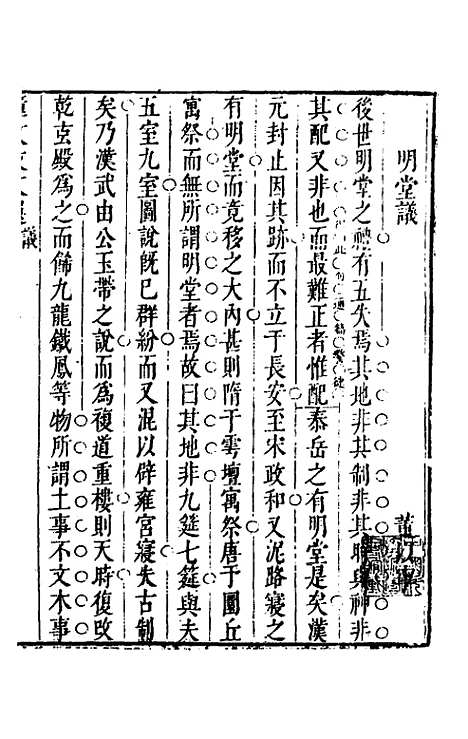 明堂議
後世明堂之禮有五失焉其地非其制非其時與神非
其配又非也而最難正者惟配泰岳之有明堂是矣漢
元封止因其跡而不立于長安至宋政和又泥路寢之
有明堂而竟移之大內甚則隋于雩壇寓祭唐于圜丘
寓祭而無所謂明堂者焉故曰其地非九筵七筵與夫
五室九室圖說旣已群紛而又混以辟雍宮寢失古制
矣乃漢武由公玉帶之說而為複道重樓則天時復改
乾玄殿爲之而餙九龍鐵鳳等物所謂土事不文木事